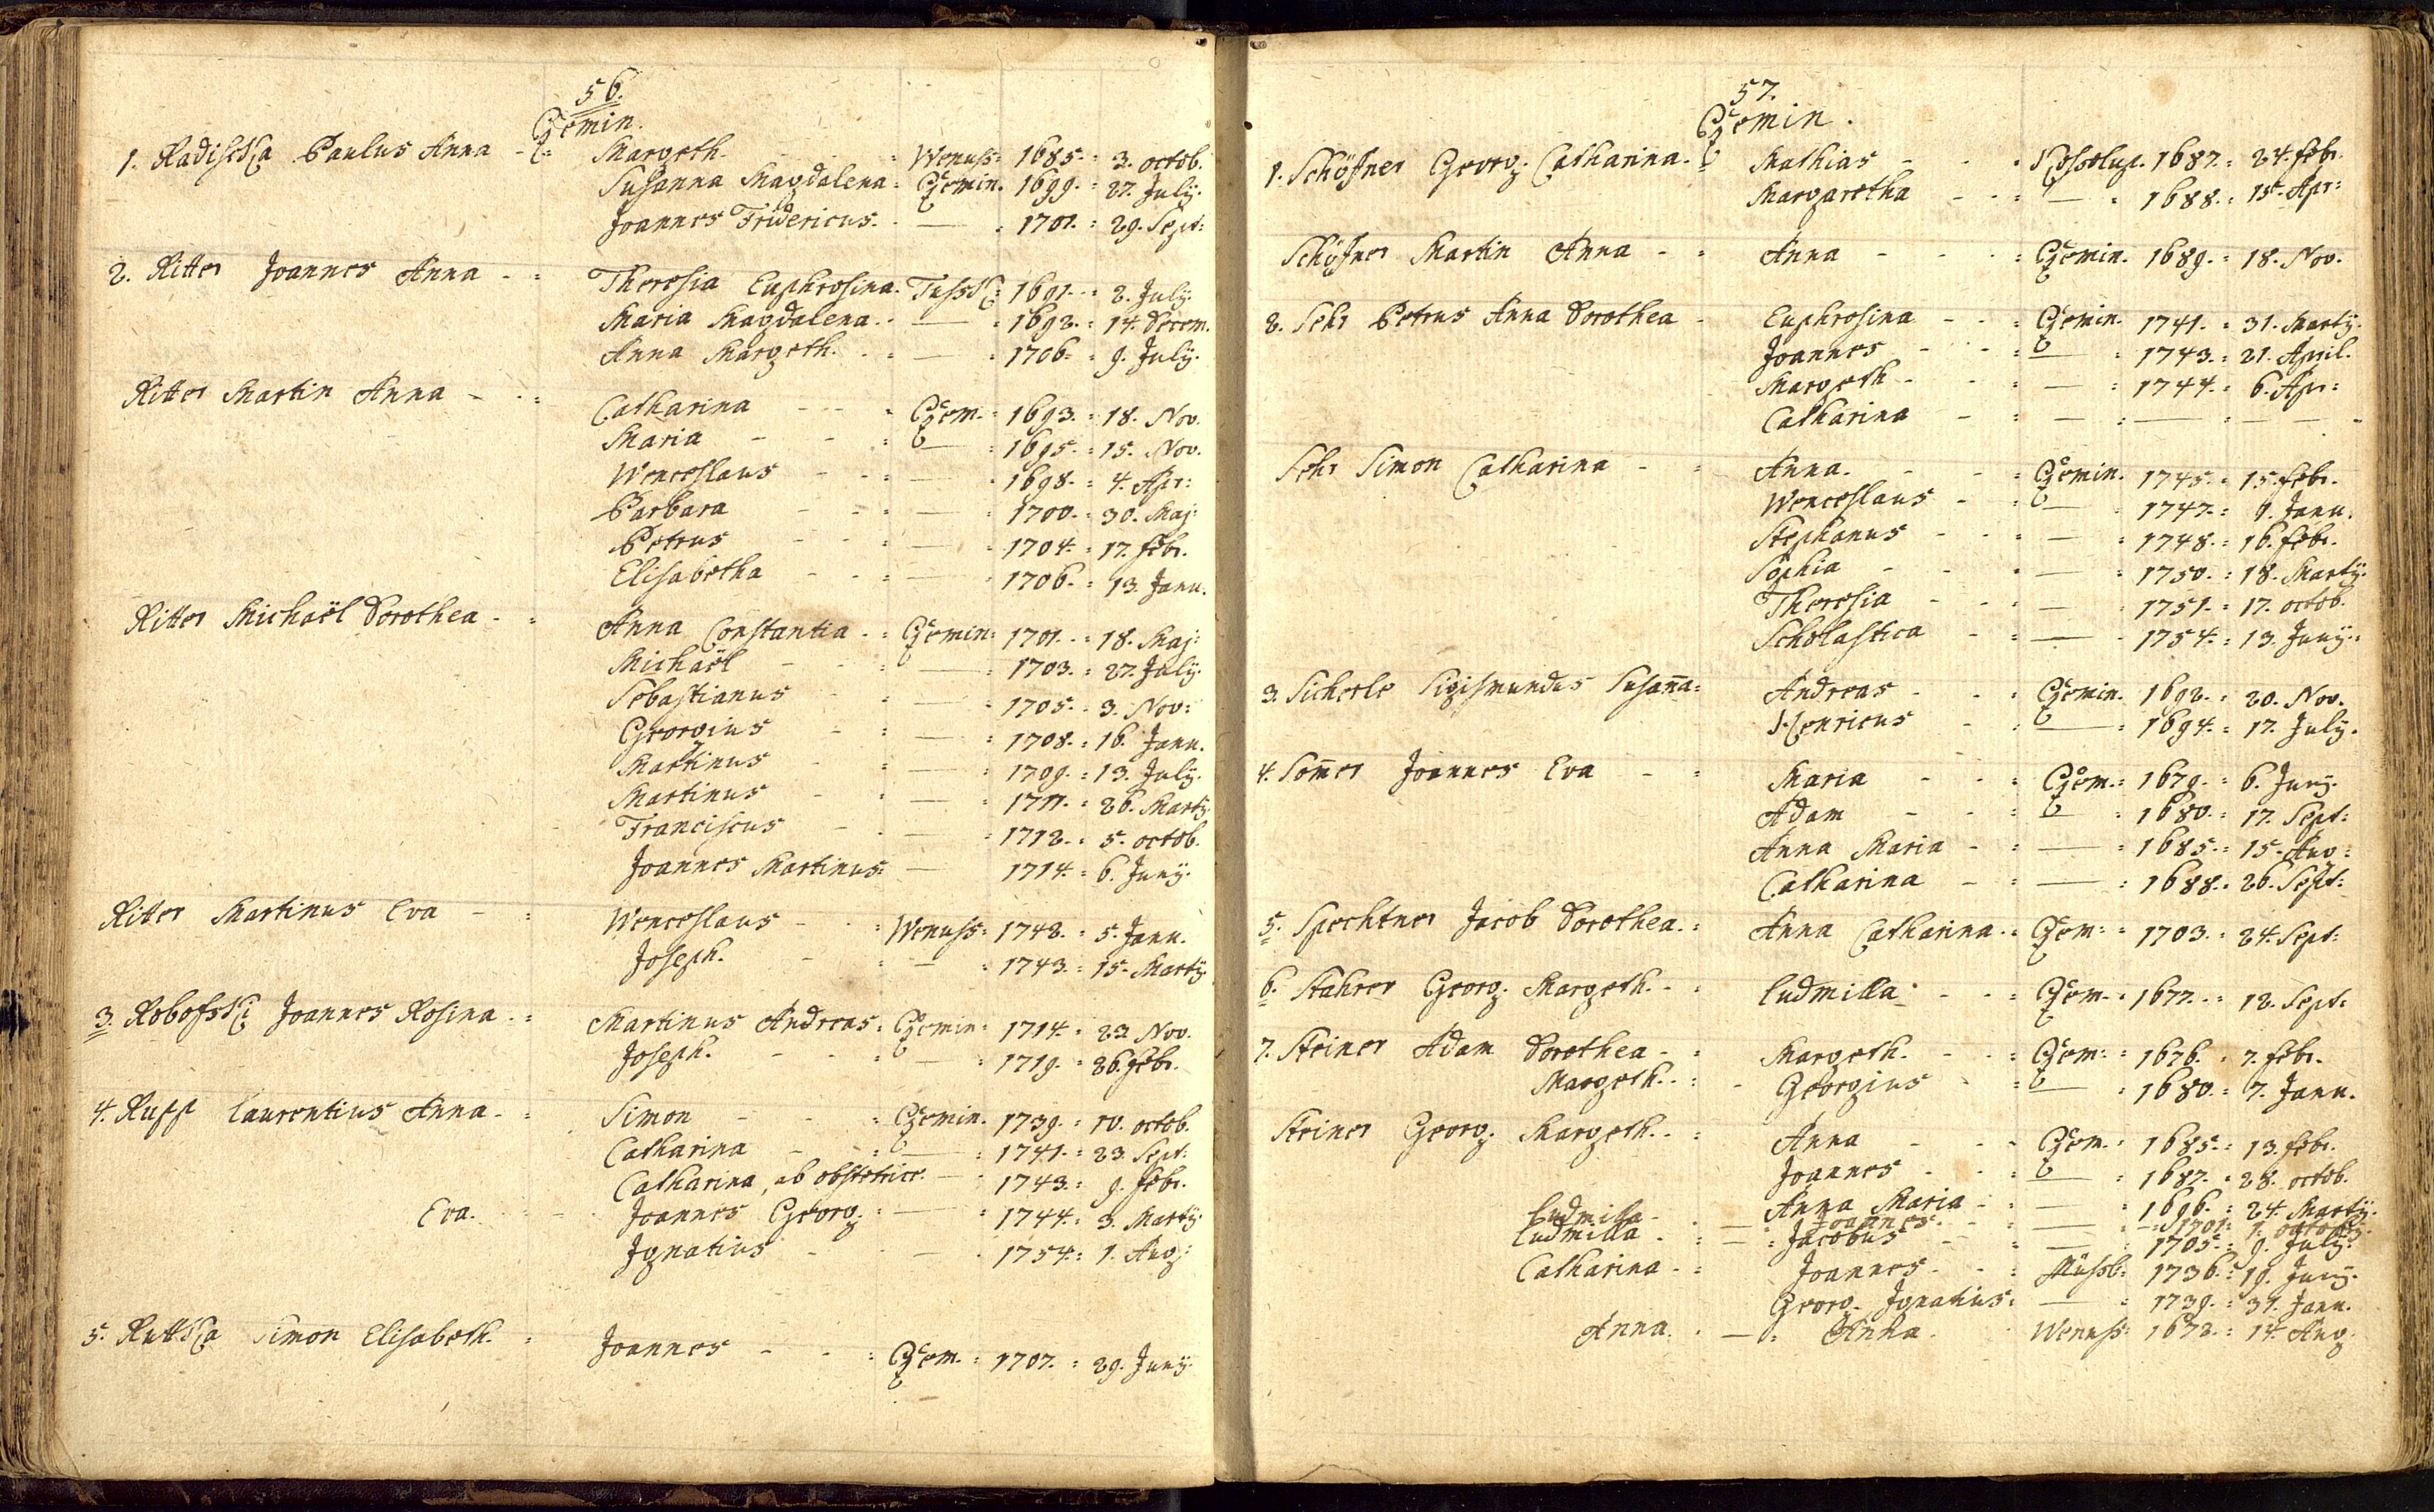 56.
Czemin.
1. Radischka Paulus Anna - = Margeth. = Wenuss: 1685. = 3. octob.
Susanna Magdalena = Czemin. 1699. = 27. July.
Joannes Fridericus. - — = 1701. = 29. Sept:
2. Ritter Joannes Anna - = Theresia Euphrosina. 1691. = 2. July.
Maria Magdalena. - — = 1692. = 14. Decem.
Anna Margeth. - — = 1706. = 9. July.
Ritter Martin Anna - = Catharina - - = Czem. = 1693. = 18. Nov.
Maria - - = — = 1695. = 15. Nov.
Wenceslaus - - = — = 1698. = 4. Apr:
Barbara - - = — = 1700. = 30. Maj:
Petrus - - = — = 1704. = 17. Febr.
Elisabetha - - = — = 1706. = 13. Janu.
Ritter Michaël Dorothea - = Anna Constantia - = Czemin: 1701. = 18. Maj:
Michaël - - = — = 1703. = 27. July.
Sebastianus - = — = 1705. = 3. Nov:
Georgius - = — = 1708. = 16. Janu.
Martinus - = — = 1709. = 13. July.
Martinus - = — = 1711. = 26. Marty.
Franciscus - = — = 1712. = 5. octob.
Joannes Martinus: — 1714. = 6. Juny.
Ritter Martinus Eva - = Wenceslaus - - = Wenuss: 1742. = 5. Janu.
Joseph. - = — = 1743. = 15. Marty
3. Joannes Rosina - = Martinus Andreas = Czemin = 1714. = 23 Nov.
Joseph. - - = — = 1719. = 26. Febr.
4. Rupp Laurentius Anna - = Simon - - = Czemin. 1739. = 10. octob.
Catharina - = — = 1741. = 23. Sept:
Catharina, ab obstetrice. — = 1743. = 9. Febr.
Eva. - - Joannes Georg. = — = 1744. = 3. Marty
Ignatius - - — = 1754. = 1. Aug:
5. Simon Elisabeth. = Joannes - - = Czem. = 1707. = 29. Juny
57.
Czemin.
1. Schöfner Georg. Catharina. = Mathias - - = 1687. = 24. Febr.
Margaretha - - = — = 1688. = 15. Apr:
Schöfner Martin Anna - = Anna - - = Czemin. 1689. = 18. Nov.
2. Sehr Petrus Anna Dorothea - Euphrosina - - = Czemin. 1741. = 31. Marty.
Joannes - - = — = 1743. = 21. April.
Margeth - - = — = 1744. = 6. Apr:
Catharina - = — = — = — -
Sehr Simon Catharina - = Anna. - - = Czemin. 1745. = 15. Febr.
Wenceslaus - = — = 1747. = 9. Janu.
Stephanus - = — = 1748. = 16. Febr.
Sophia - - = — = 1750. = 18. Marty.
Theresia - - = — = 1751. = 17. octob.
Scholastica - = — = 1754. = 13. Juny.
3. Sicherle Sigismundus Susaña: Andreas - - = Czemin. 1692. = 20. Nov.
Henricus - = — = 1694. = 17. July.
4. Som̃er Joannes Eva - = Maria - - = Czem. = 1679. = 6. Juny.
Adam - - = — = 1680. = 17. Sept:
Anna Maria - = — = 1685. = 15. Aug:
Catharina - = — = 1688. = 26. Sept:
5. Spechtner Jacob Dorothea. = Anna Catharina. = Czem: = 1703. = 24. Sept:
6. Stahrer Georg. Margeth. - = Ludmilla - - = Czem. = 1677. = 12. Sept:
7. Steiner Adam Dorothea - = Margeth. - - = Czem: = 1676. = 7. Febr.
Margeth. = - Georgius - = — = 1680. = 7. Janu.
Steiner Georg. Margeth. - = Anna - - = Czem. = 1685. = 13. Febr.
Joannes - - = — = 1687. = 28. octob.
Ludmilla - - Anna Maria - = — = 1696. = 24. Marty.
Ludmilla - = — Joannes - - = — = 1701.
— = Jacobus - = — = 1705. = 9. July.
Catharina - = Joannes - = 1736. = 19. Juny.
Georg. Ignatius: — = 1739. = 31. Janu.
Anna. = — = Anna. Wenuss: 1672. = 14. Aug.